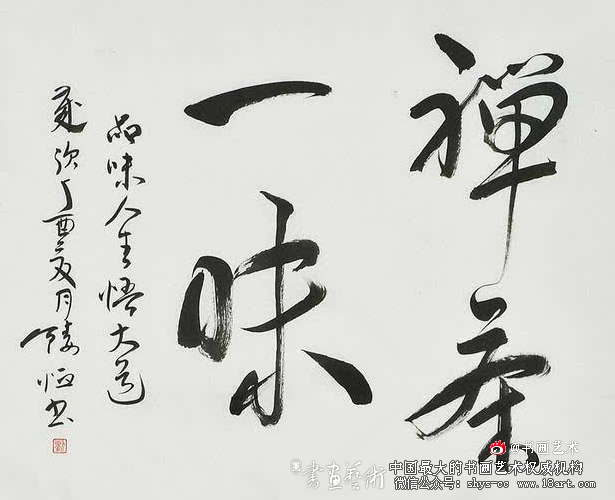 禅茶
一味
品味人生悟大道
歲次丁酉夏月 恒书
@书画艺术
書畫藝術
中国最大的书画艺术权威机构
微信公众号：shys-cc www.18art.com